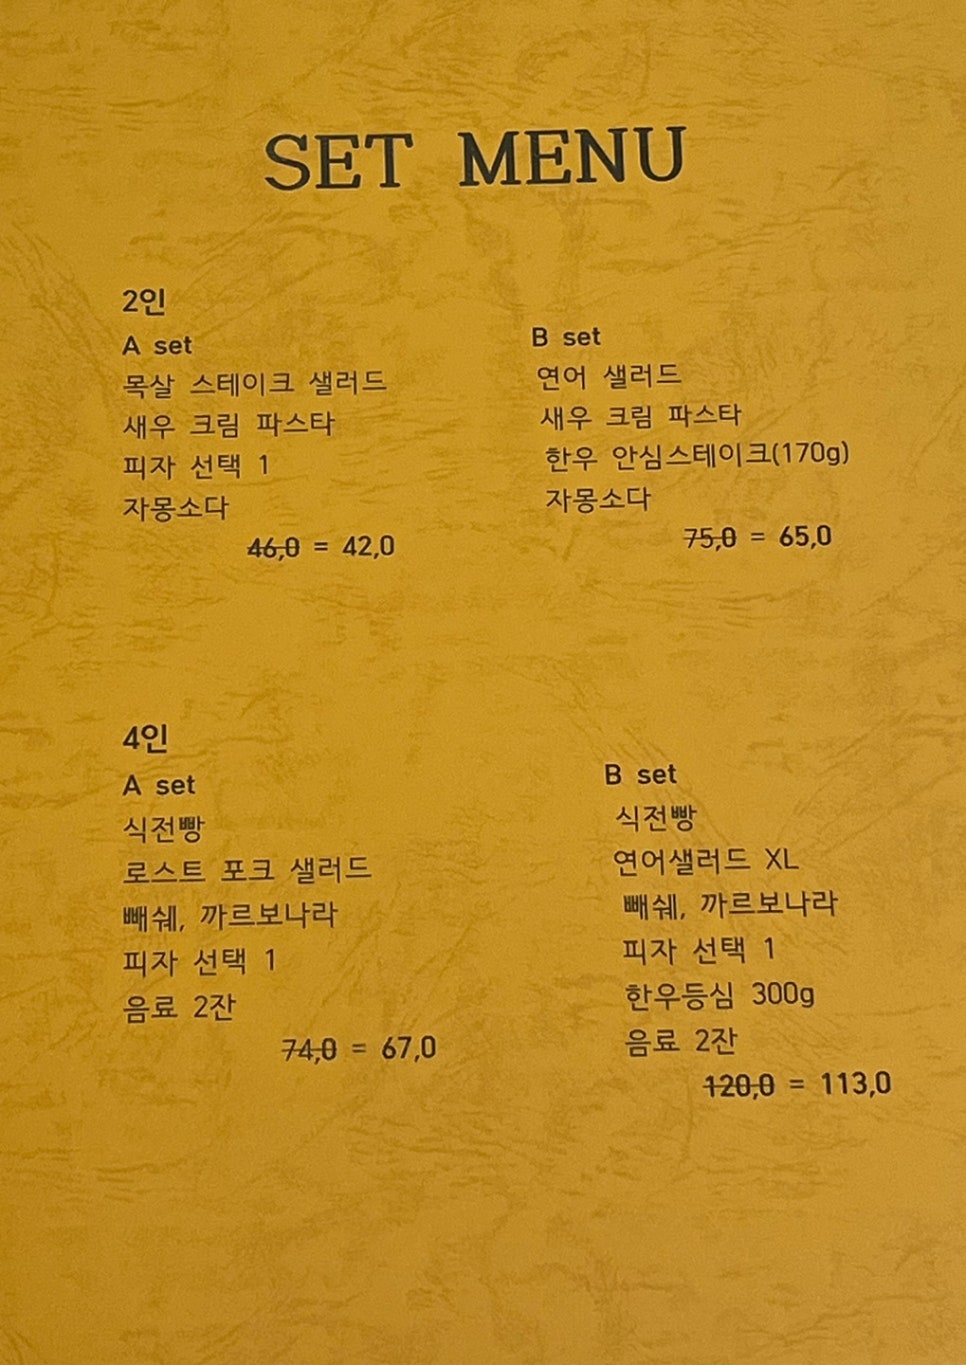 SET MENU
2인
A set
목살 스테이크 샐러드
새우 크림 파스타
피자 선택 1
자몽소다
46,0 = 42,0
B set
연어 샐러드
새우 크림 파스타
한우 안심스테이크(170g)
자몽소다
75,0 = 65,0
4인
A set
식전빵
로스트 포크 샐러드
빼쉐, 까르보나라
피자 선택 1
음료 2잔
74,0 = 67,0
B set
식전빵
연어샐러드 XL
빼쉐, 까르보나라
피자 선택 1
한우등심 300g
음료 2잔
120,0 = 113,0